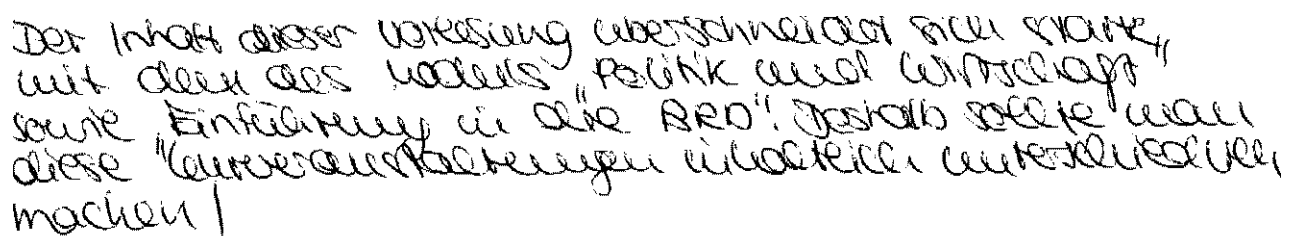 Der Inhalt dieser Vorlesung überschneidet sich stark,
mit dem des Moduls "Politik und Wirtschaft"
sowie "Einführung in die BRD". Deshalb sollte man
diese Lehrveranstaltungen inhaltlich unterschiedlich
machen!